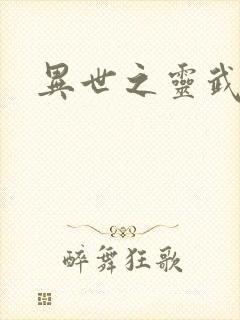 異世之靈武
醉舞狂歌